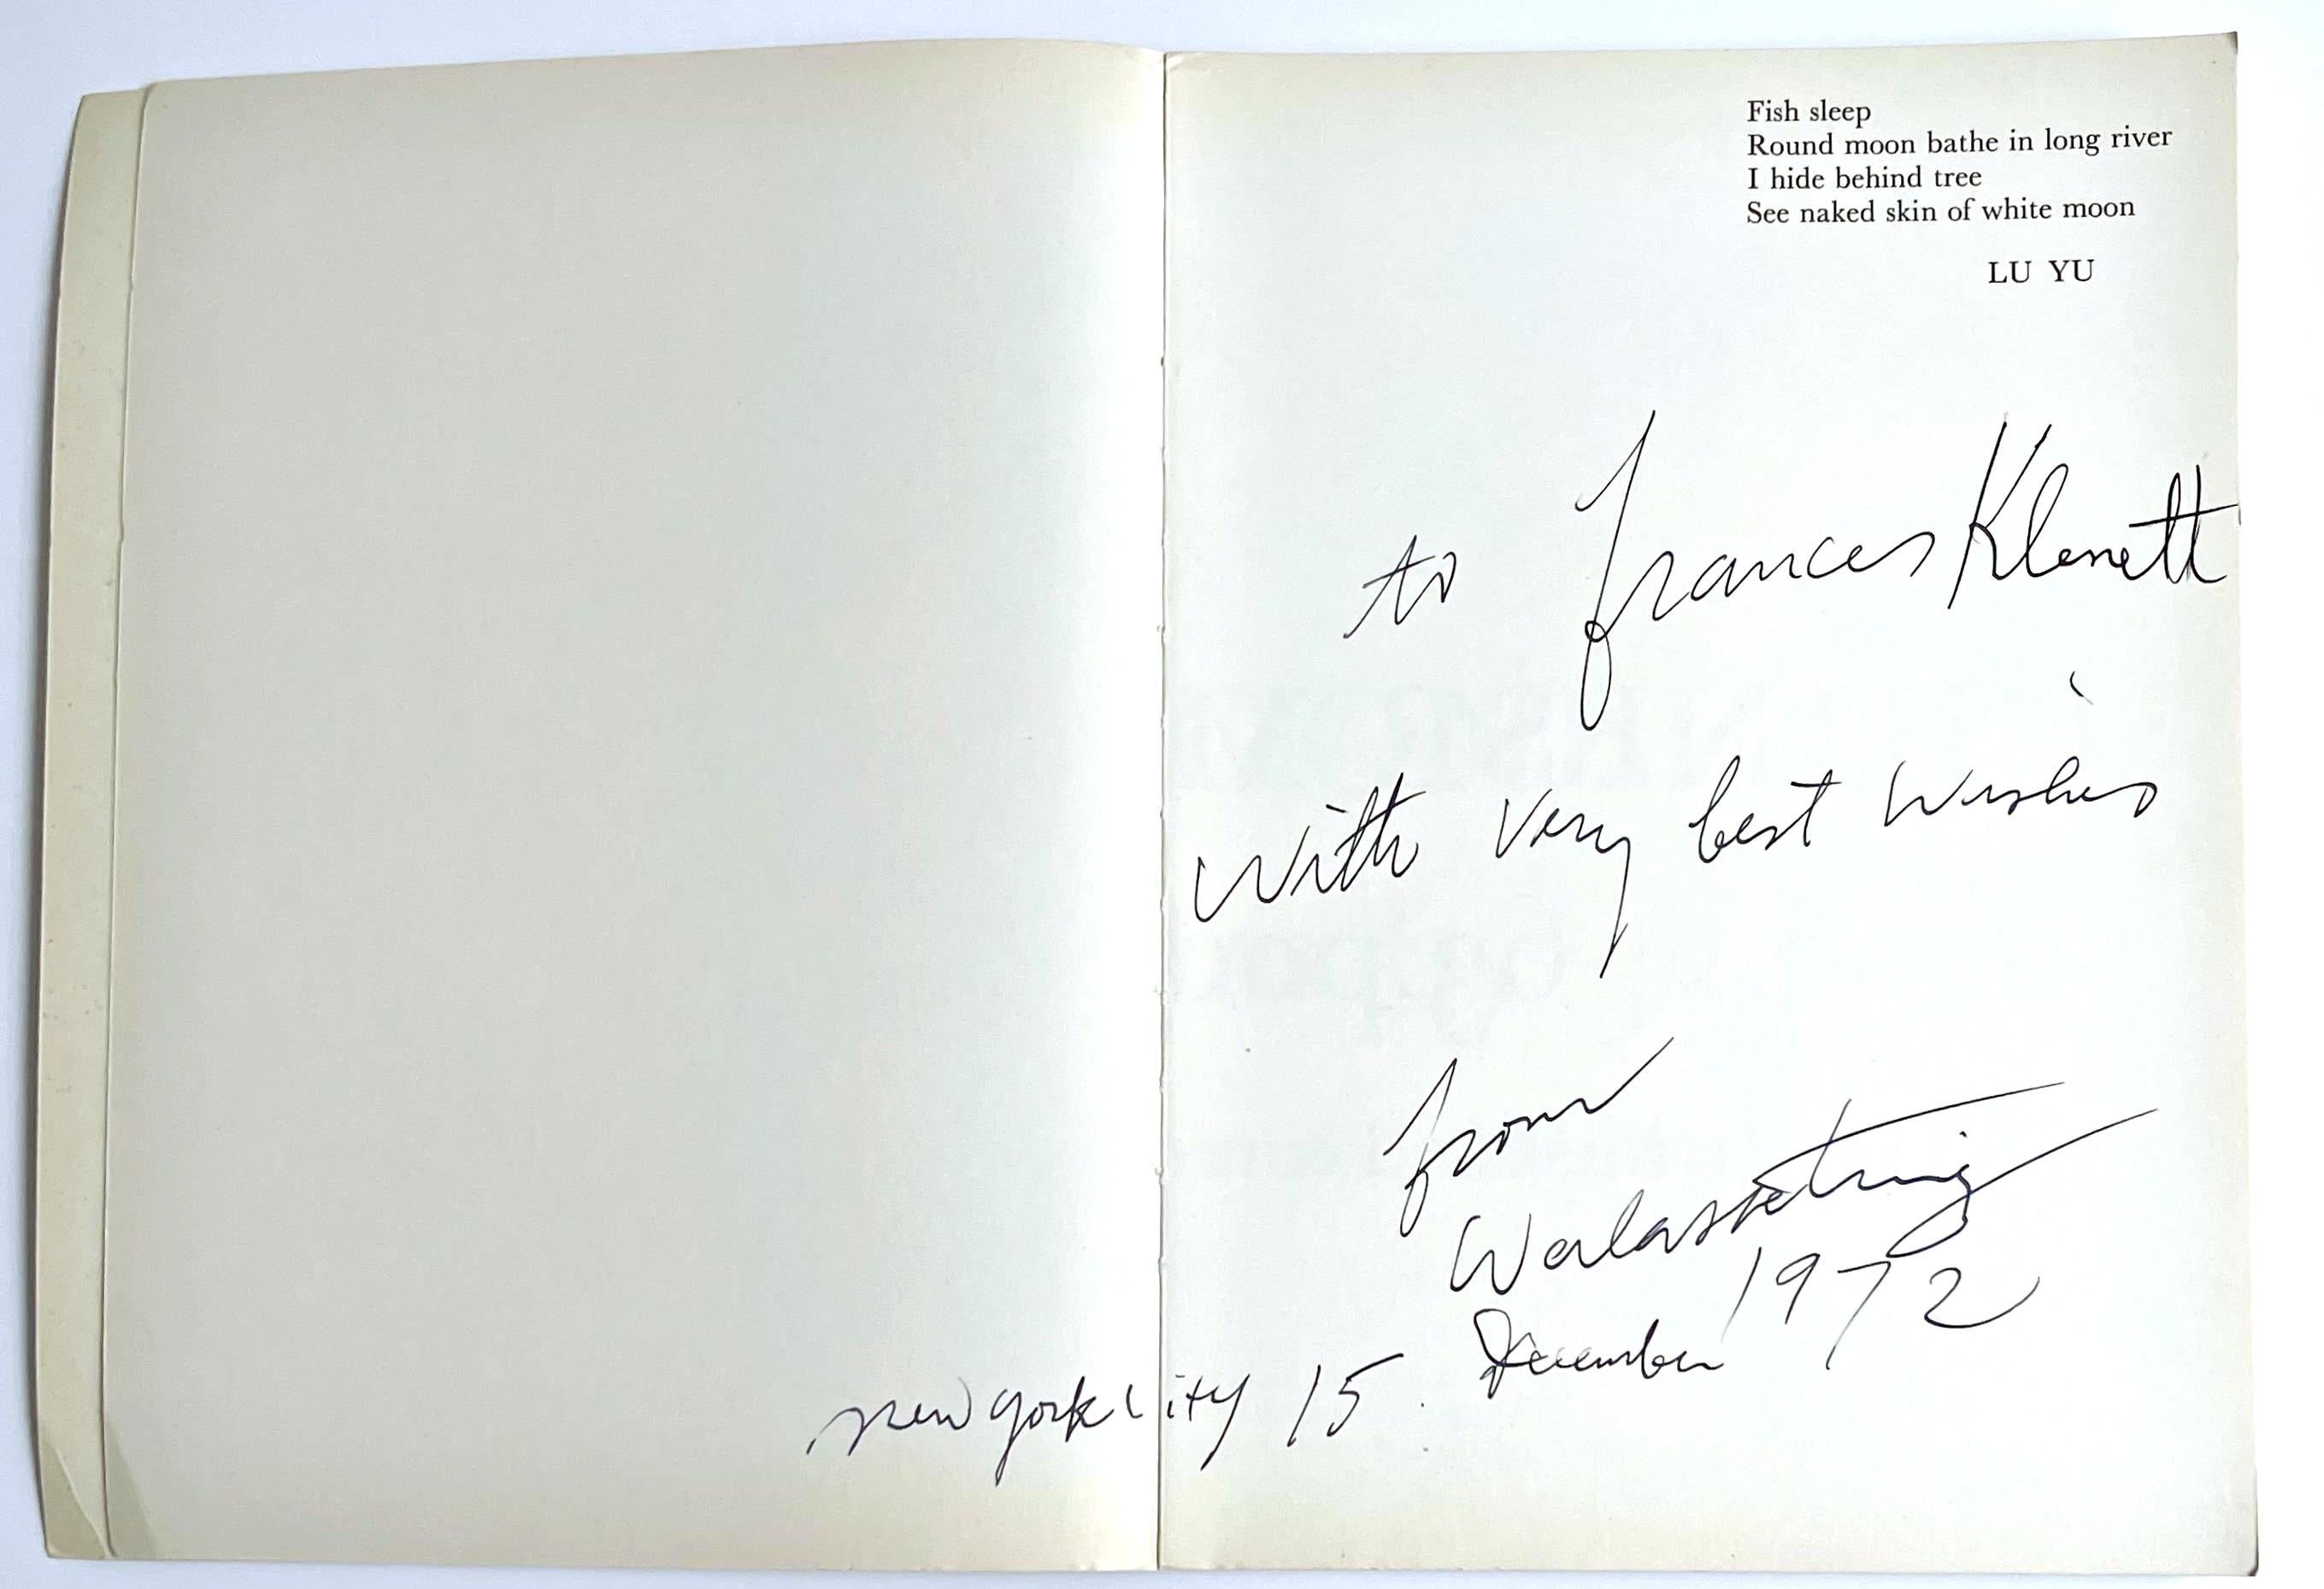 Fish sleep
Round moon bathe in long river
I hide behind tree
See naked skin of white moon
LU YU
to Frances Klenett
with very best wishes
from
Walasse ting
1972
new york city 15. December